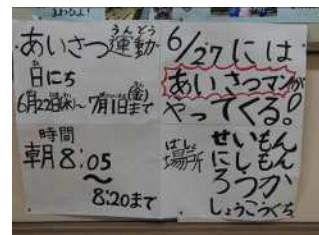 あいさつ運動
うんどう
日にち
6月22日(水)〜7月1日(金)まで
時間
朝8:05
〜
8:20まで
6/27には
あいさつマンが
やってくる!
場所
ばしょ
せいもん
にしもん
ろうか
しょうこうぐち